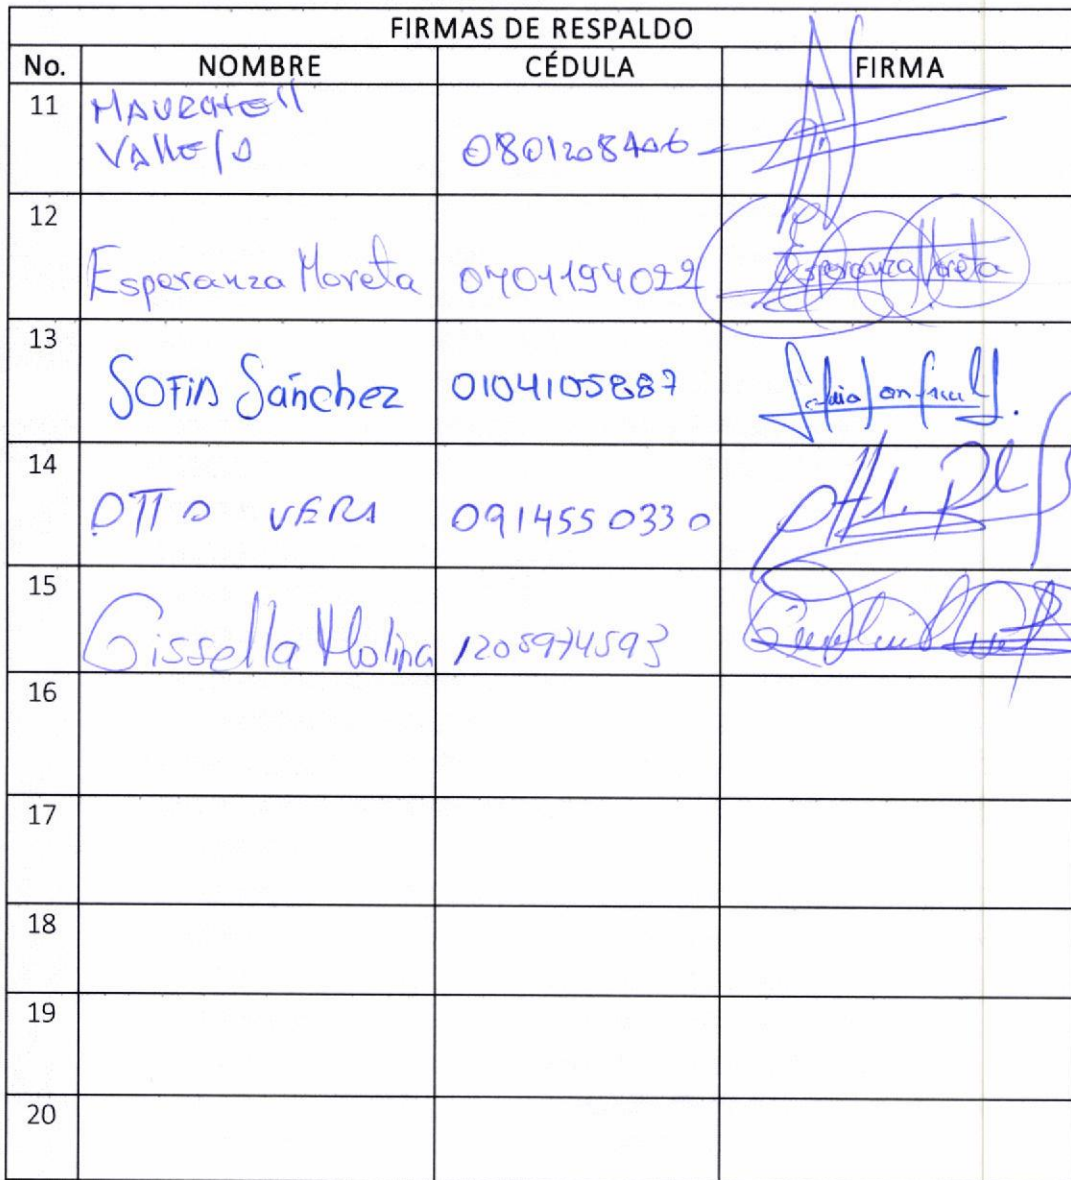 FIRMAS DE RESPALDO
No. NOMBRE CÉDULA FIRMA
11
VALLEJO
12 Esperanza Moreta Esperanza Moreta
13 SOFIA Sánchez 0104105887
14 OTTO VERA 0914550330
15 Gissella Molina 1205974593
16
17
18
19
20